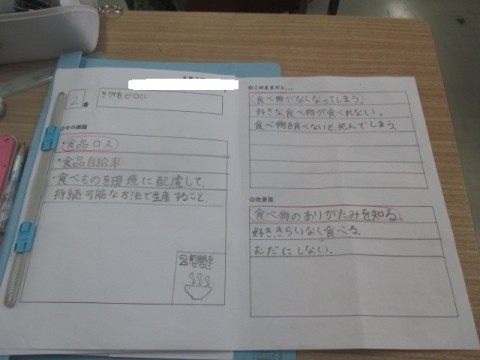 2
飢餓をゼロに
◎今の課題
・食品ロス
・食品自給率
・食べものを環境に配慮して、
持続可能な方法で生産すること
2 飢餓を
ゼロに
◎このままだと…
食べ物がなくなってしまう。
好きな食べ物が食べれない。
食べ物を食べないと死んでしまう。
◎改善策
食べ物のありがたみを知る。
好ききらいなく食べる。
むだにしない。